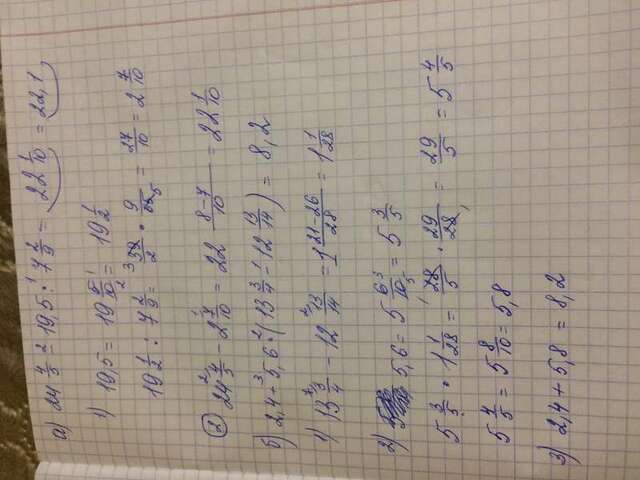 а) 24 4/5 - 19,5 : 7 2/9 = 22 1/10 = 22,1
1) 19,5 = 19 5/10 = 19 1/2
19 1/2 : 7 2/9 = 39/2 · 9/65 = 27/10 = 2 7/10
② 24 4/5 - 2 7/10 = 22 8-7/10 = 22 1/10
б) 2,4 + 5,6 · (13 3/4 - 12 13/14) = 8,2
1) 13 3/4 - 12 13/14 = 1 21-26/28 = 1 1/28
2) 5,6 = 5 6/10 = 5 3/5
5 3/5 · 1 1/28 = 28/5 · 29/28 = 29/5 = 5 4/5
5 4/5 = 5 8/10 = 5,8
3) 2,4 + 5,8 = 8,2